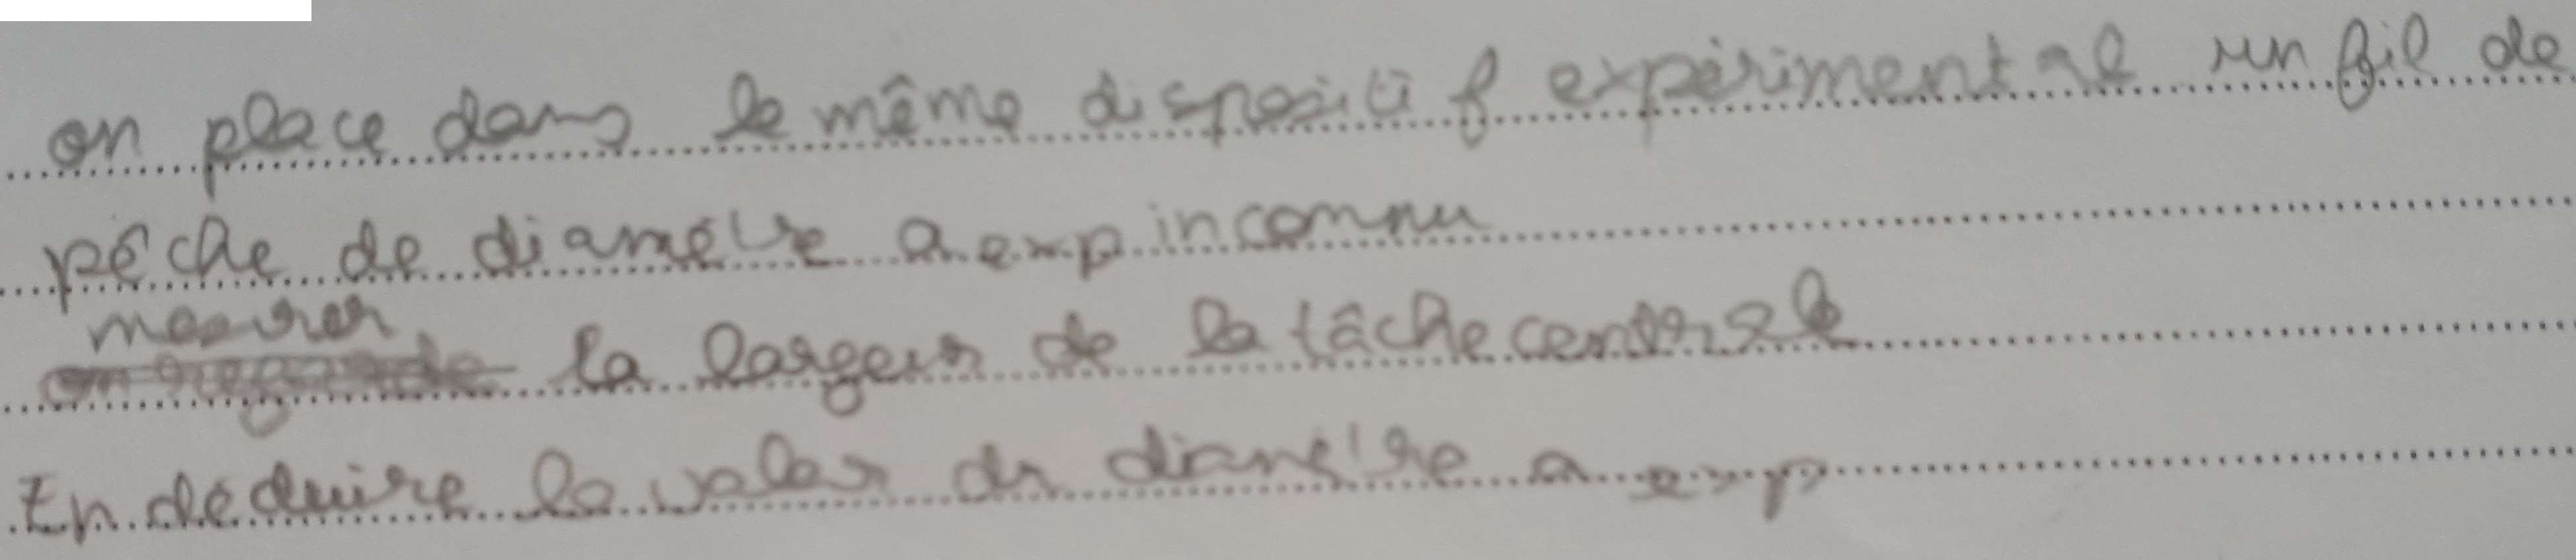 on place dans le même dispositif expérimental un fil de
pêche de diamètre a exp inconnu
mesurer la largeur de la tâche centrale
En déduire la valer du diamètre a exp